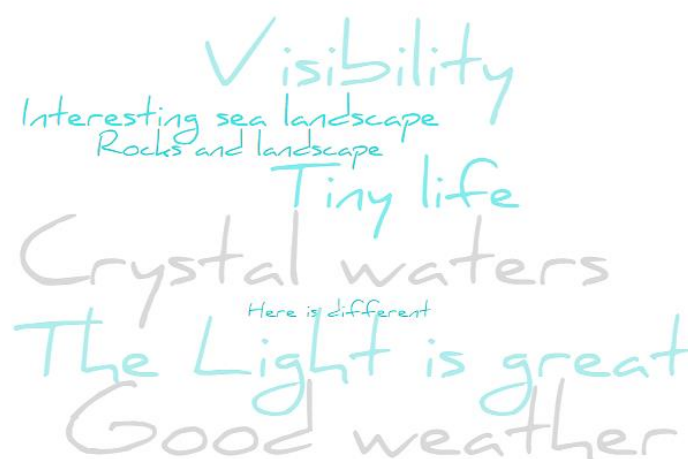 Visibility
Interesting sea landscape
Rocks and landscape
Tiny life
Crystal waters
Here is different
The Light is great
Good weather